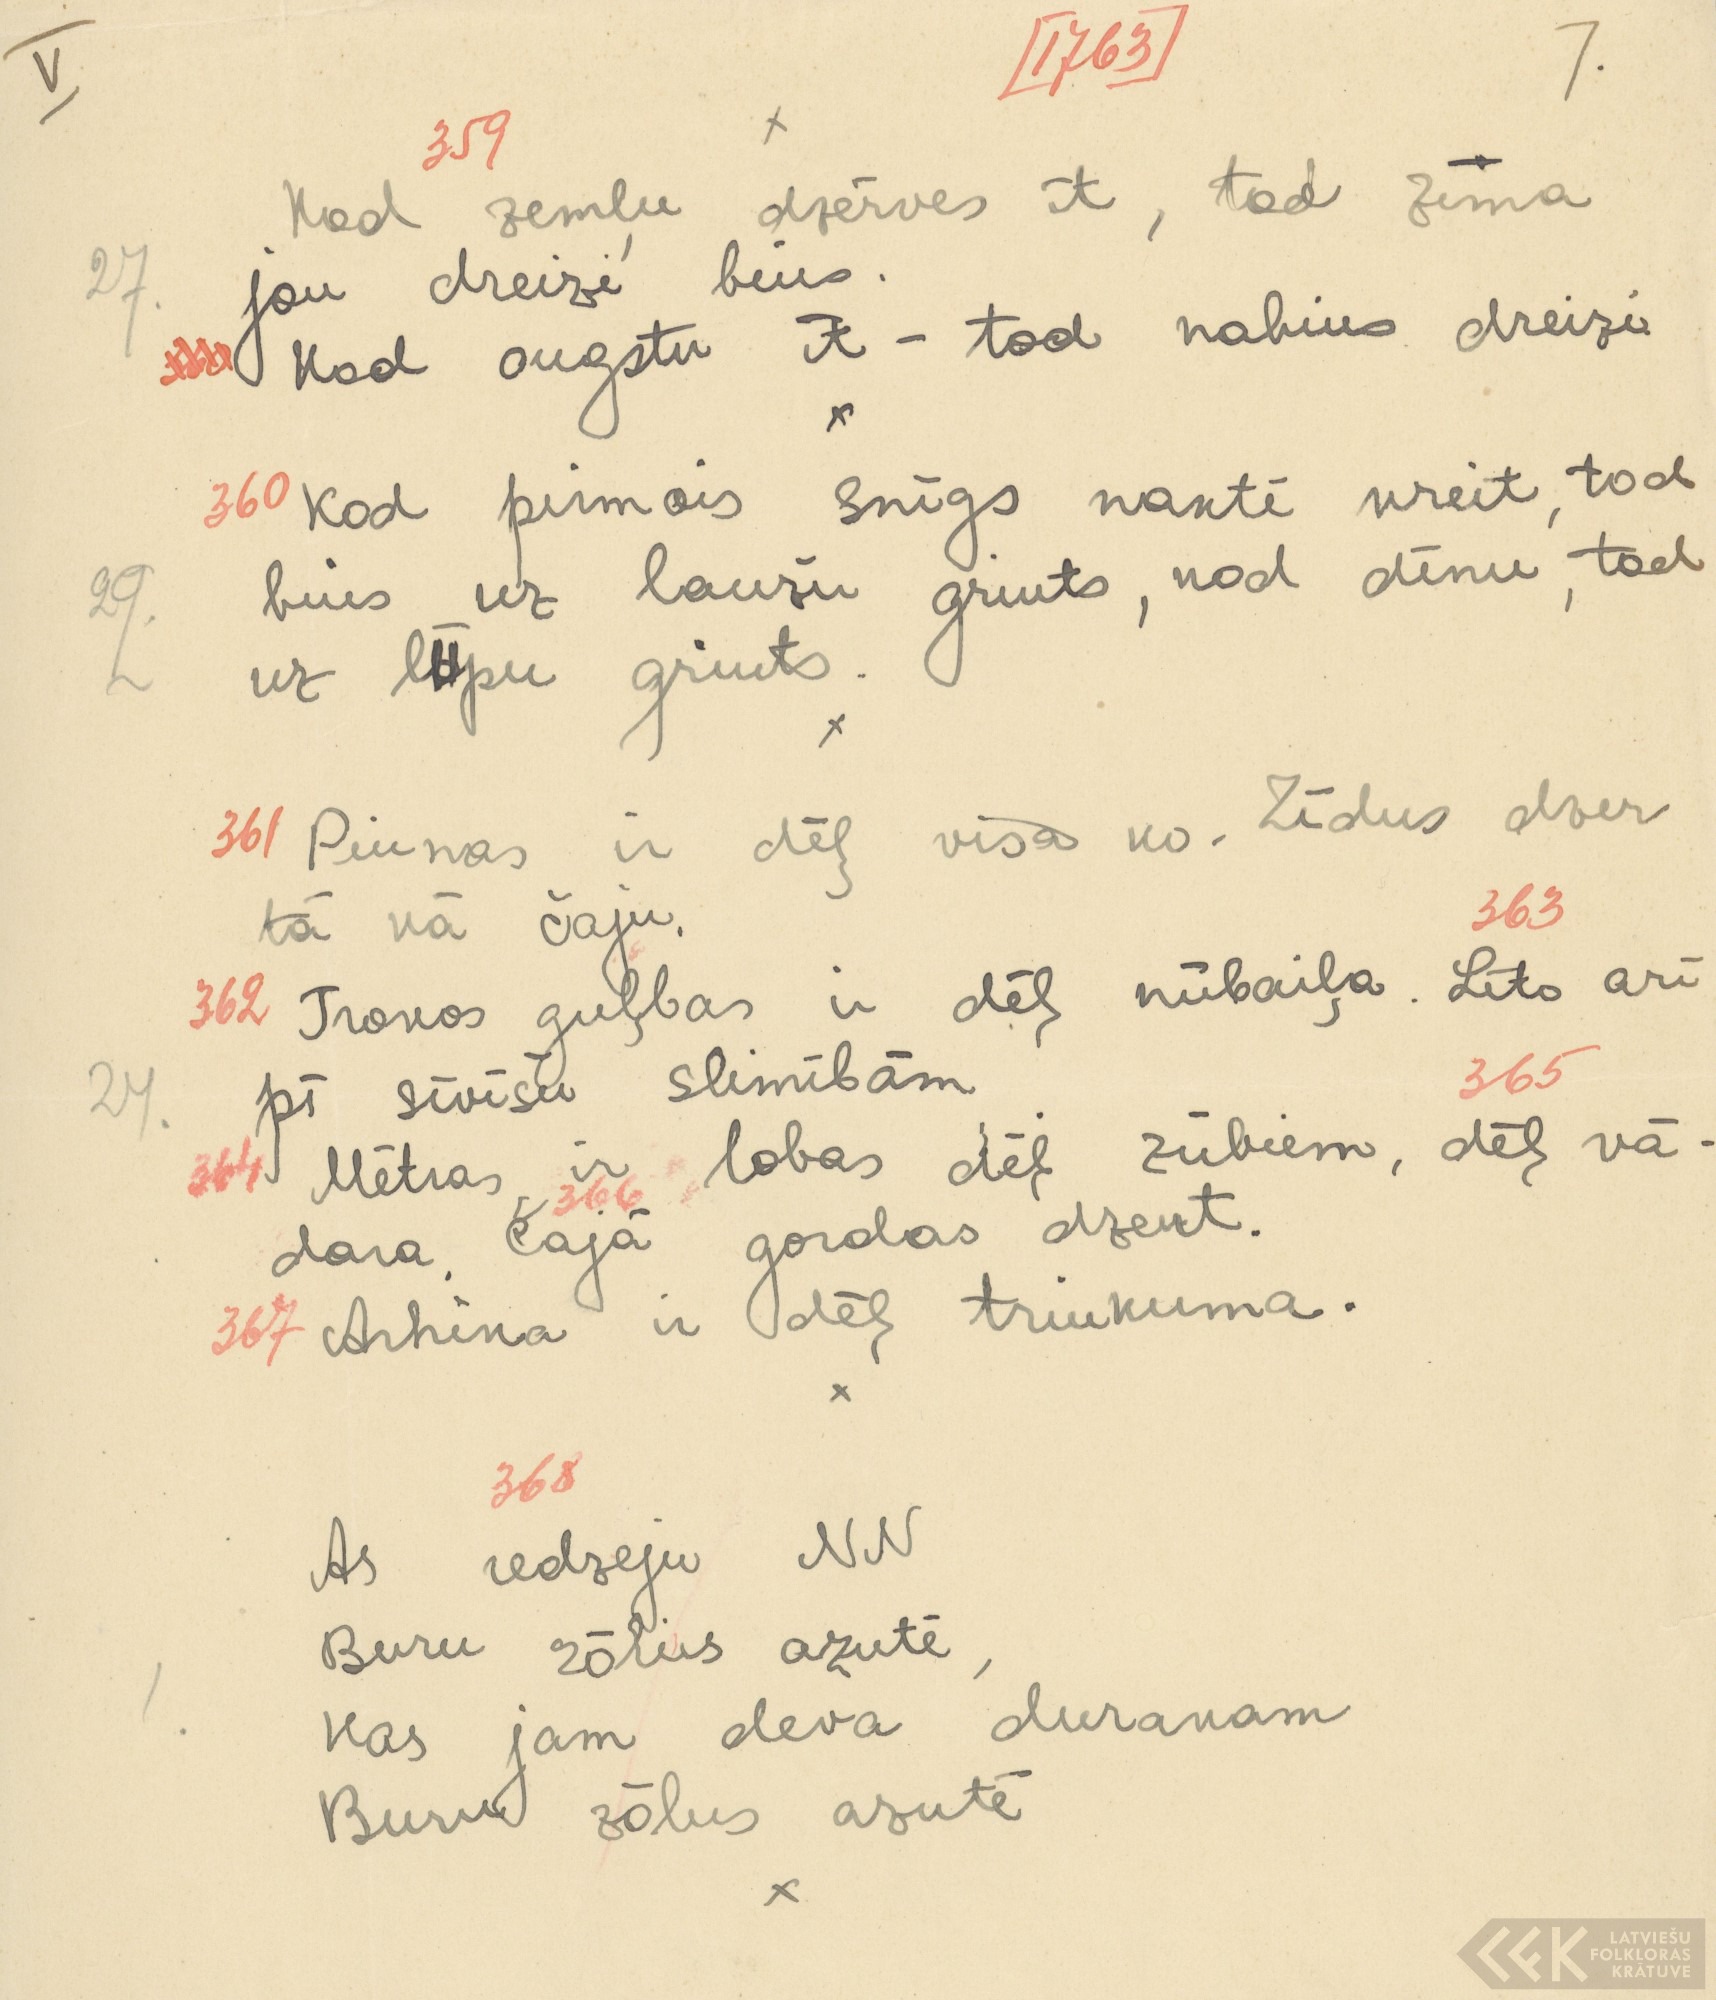 V
[1763]
7.
359
x
Kod zemļu dzērves īt, tod zīma
27. jou dreiži bius.
Kod ougstu īt – tod nabius dreiži
x
360 Kod pirmois snīgs naktī kreit, tod
29. bius uz laužu griuts, kod dīnu, tod
uz lūpu griuts.
x
361 Piunas ir dēļ visa ko. Zīdus dzer
tā kā čaju.
363
362 Trokos guļbas ir dēļ nūbaiļa. Līto arī
24. pī sīvīšu slimībām
365
364 Mētras ir lobas dēļ zūbiem, dēļ vā-
366
dara. Čajā gordas dzert.
367 Arhika ir dēļ triukuma.
x
368
As redzeju NN
Buru zōlus azutē,
1. Kas jam deva durakam
Buru zōlus azutē
x
LATVIEŠU
FOLKLORAS
KRĀTUVE